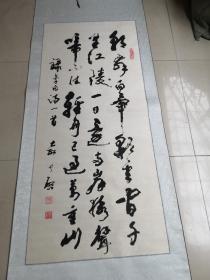 朝辞白帝彩云間千
里江陵一日還両岸猿聲
啼不住軽舟已過萬重山
錄李白诗一首